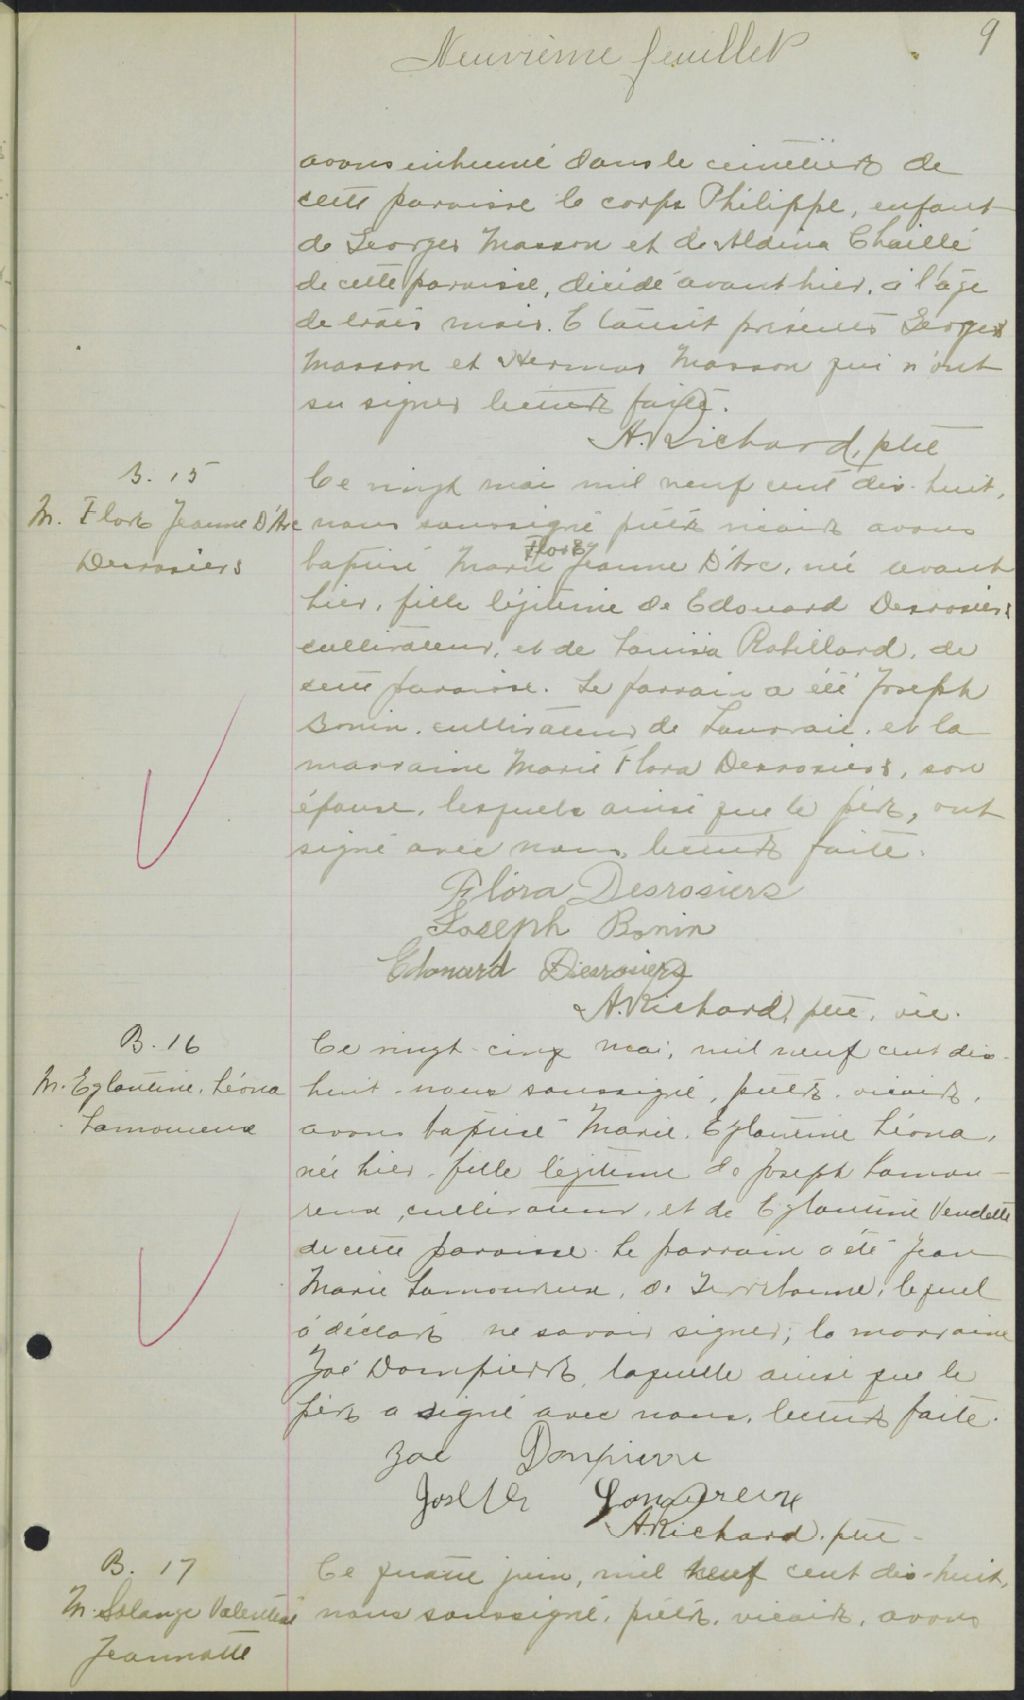 Neuvième feuillet
9
avons inhumé dans le cimetière de
cette paroisse le corps Philippe, enfant
de Georges Masson et de Aldina Chaillé
de cette paroisse, décédé avant hier, a l'age
de trois mois. Etaient présents Georges
Masson et Hermas Masson qui n'ont
su signer lecture faite.
A. Richard, ptre
B. 15
M. Flore Jeanne D'Arc
Desrosiers
Ce vingt mai mil neuf cent dix-huit,
nous soussigné prêtre vicaire avons
baptisé Marie Flore Jeanne D'Arc, née avant
hier, fille légitime de Edouard Desrosiers
cultivateur, et de Louisa Robillard, de
cette paroisse. Le parrain a été Joseph
Bonin, cultivateur de Lavaraie, et la
marraine Marie Flora Desrosiers, son
épouse, lesquels ainsi que le père, ont
signé avec nous, lecture faite.
Flora Desrosiers
Joseph Bonin
Edouard Desrosiers
A. Richard, ptre, vic.
B. 16
M. Eglantine, Léona
Lamoureux
Ce vingt-cinq mai, mil neuf cent dix-
huit, nous soussigné, prêtre, vicaire,
avons baptisé Marie, Eglantine Léona,
née hier, fille légitime de Joseph Lamou-
reux, cultivateur, et de Eglantine Vendette
de cette paroisse. Le parrain a été Jean
Marie Lamoureux, de Terrebonne, lequel
a déclaré ne savoir signer; la marraine
Zoé Dompierre, laquelle ainsi que le
père a signé avec nous, lecture faite.
Zoe Dompierre
Joseph Lamoureux
A. Richard, ptre
B. 17
M. Solange Valentine
Jeannotte
Ce quatre juin, mil neuf cent dix-huit,
nous soussigné, prêtre, vicaire, avons